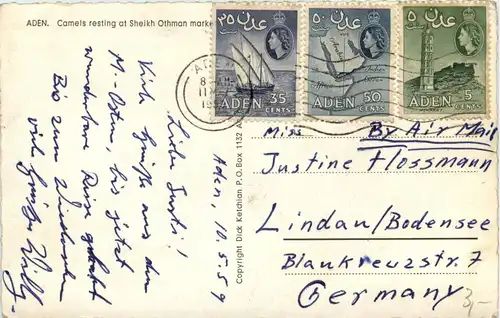 ADEN. Camels resting at Sheikh Othman marke
عدن
٣٥
ADEN
35
CENTS
عدن
٥٠
ADEN
50
CENTS
عدن
٥
ADEN
5
CENTS
Aden, 10.5.59
Liebe Justi!
Viele Grüße aus dem
M.-Osten, bis jetzt
wunderbare Reise gehabt
Bis zum Wiedersehen
viele Grüße Willy
Copyright Dick Ketchian P.O.Box 1132
Miss
By Air Mail
Justine Flossmann
Lindau/Bodensee
Blankreuzstr. 7
Germany
3,-